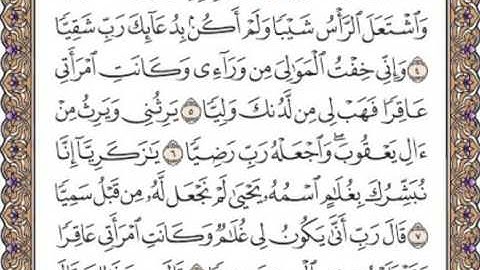 وَٱشْتَعَلَ ٱلرَّأْسُ شَيْبًا وَلَمْ أَكُنۢ بِدُعَآئِكَ رَبِّ شَقِيًّا
٤ وَإِنِّى خِفْتُ ٱلْمَوَٰلِىَ مِن وَرَآءِى وَكَانَتِ ٱمْرَأَتِى
عَاقِرًا فَهَبْ لِى مِن لَّدُنكَ وَلِيًّا ٥ يَرِثُنِى وَيَرِثُ مِنْ
ءَالِ يَعْقُوبَ ۖ وَٱجْعَلْهُ رَبِّ رَضِيًّا ٦ يَٰزَكَرِيَّآ إِنَّا
نُبَشِّرُكَ بِغُلَٰمٍ ٱسْمُهُۥ يَحْيَىٰ لَمْ نَجْعَل لَّهُۥ مِن قَبْلُ سَمِيًّا
٧ قَالَ رَبِّ أَنَّىٰ يَكُونُ لِى غُلَٰمٌ وَكَانَتِ ٱمْرَأَتِى عَاقِرًا